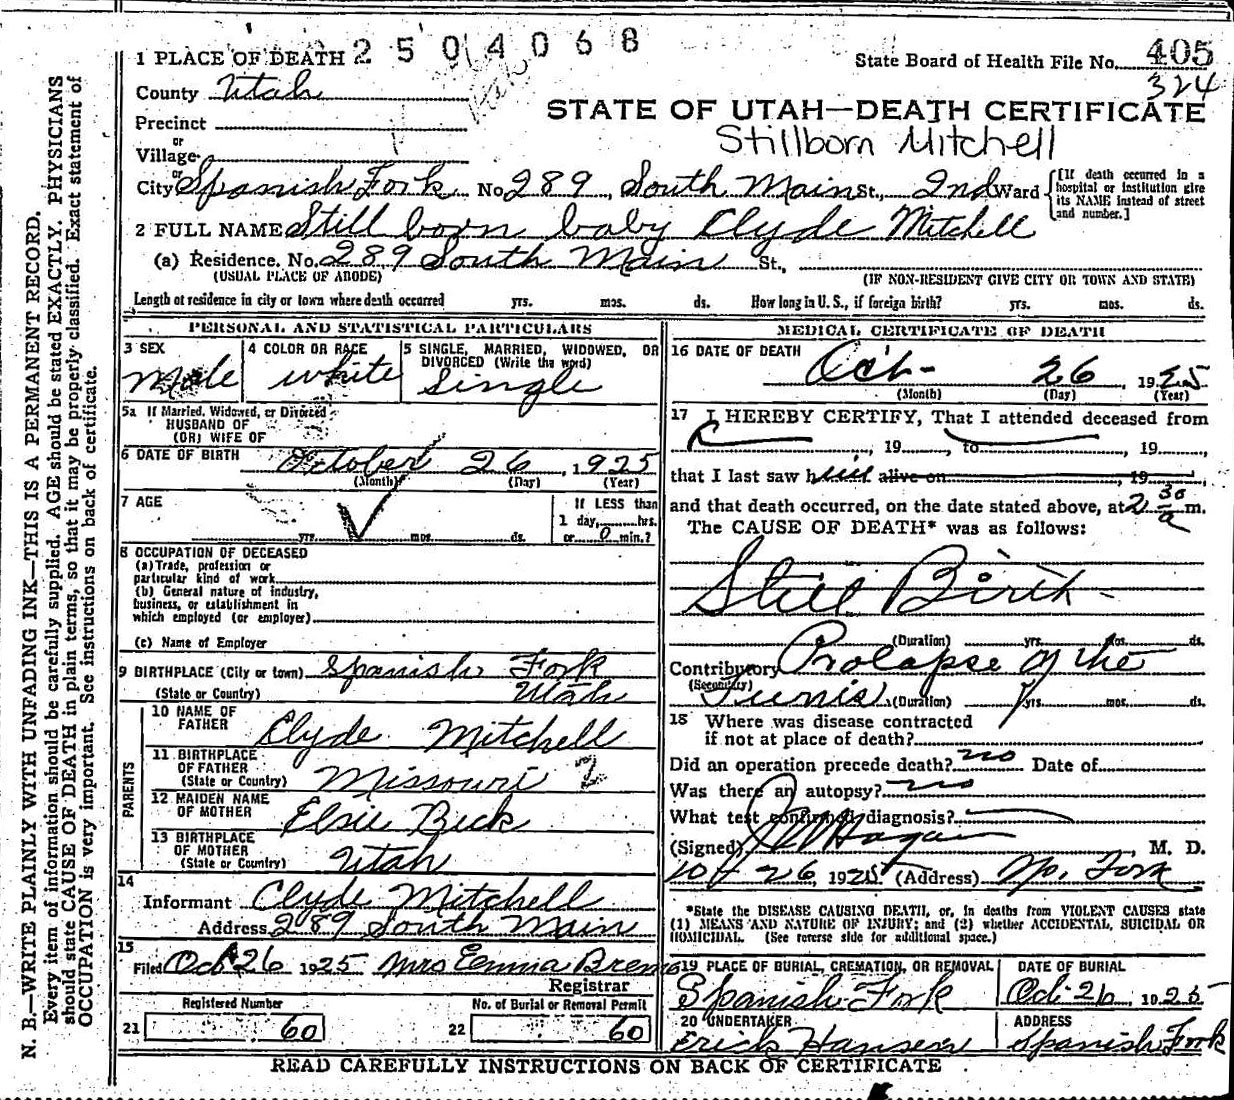 1 PLACE OF DEATH 2 5 0 4 0 6 8
State Board of Health File No. 405
324
County Utah
STATE OF UTAH—DEATH CERTIFICATE
Precinct
Stillborn Mitchell
or
Village
or
City Spanish Fork No. 289, South Main St., 2nd Ward
[If death occurred in a hospital or institution give its NAME instead of street and number.]
2 FULL NAME Still born baby Clyde Mitchell
(a) Residence. No. 289 South Main St.,
(USUAL PLACE OF ABODE) (IF NON-RESIDENT GIVE CITY OR TOWN AND STATE)
Length of residence in city or town where death occurred yrs. mos. ds. How long in U. S., if foreign birth? yrs. mos. ds.
PERSONAL AND STATISTICAL PARTICULARS
3 SEX
Male
4 COLOR OR RACE
white
5 SINGLE, MARRIED, WIDOWED, OR
DIVORCED (Write the word)
Single
5a If Married, Widowed, or Divorced
HUSBAND OF
(OR) WIFE OF
6 DATE OF BIRTH October 26, 1925
(Month) (Day) (Year)
7 AGE
yrs. mos. ds.
If LESS than
1 day, hrs.
or 0 min.?
8 OCCUPATION OF DECEASED
(a) Trade, profession or
particular kind of work
(b) General nature of industry,
business, or establishment in
which employed (or employer)
(c) Name of Employer
9 BIRTHPLACE (City or town) Spanish Fork
(State or Country) Utah
PARENTS
10 NAME OF
FATHER Clyde Mitchell
11 BIRTHPLACE
OF FATHER
(State or Country) Missouri 2
12 MAIDEN NAME
OF MOTHER Elsie Beck
13 BIRTHPLACE
OF MOTHER
(State or Country) Utah
14
Informant Clyde Mitchell
Address 289 South Main
15
Filed Oct 26 1925 Mrs Emma
Registrar
Registered Number
21 60
No. of Burial or Removal Permit
22 60
MEDICAL CERTIFICATE OF DEATH
16 DATE OF DEATH Oct- 26, 1925
(Month) (Day) (Year)
17 I HEREBY CERTIFY, That I attended deceased from
, 19 , to , 19 ,
that I last saw him alive on , 19 ,
and that death occurred, on the date stated above, at 2 30 a m.
The CAUSE OF DEATH* was as follows:
Still Birth-
(Duration) yrs. mos. ds.
Contributory Prolapse of the
(Secondary) Funis (Duration) yrs. mos. ds.
18 Where was disease contracted
if not at place of death?
Did an operation precede death? no Date of
Was there an autopsy? no
What test confirmed diagnosis?
(Signed) Hagan M. D.
10/26, 1925 (Address) Sp. Fork
*State the DISEASE CAUSING DEATH, or, in deaths from VIOLENT CAUSES state
(1) MEANS AND NATURE OF INJURY; and (2) whether ACCIDENTAL, SUICIDAL OR
HOMICIDAL. (See reverse side for additional space.)
19 PLACE OF BURIAL, CREMATION, OR REMOVAL
Spanish Fork
DATE OF BURIAL
Oct 26, 1925
20 UNDERTAKER
Erick Hansen
ADDRESS
Spanish Fork
READ CAREFULLY INSTRUCTIONS ON BACK OF CERTIFICATE
N. B.—WRITE PLAINLY WITH UNFADING INK—THIS IS A PERMANENT RECORD.
Every item of information should be carefully supplied. AGE should be stated EXACTLY. PHYSICIANS
should state CAUSE OF DEATH in plain terms, so that it may be properly classified. Exact statement of
OCCUPATION is very important. See instructions on back of certificate.